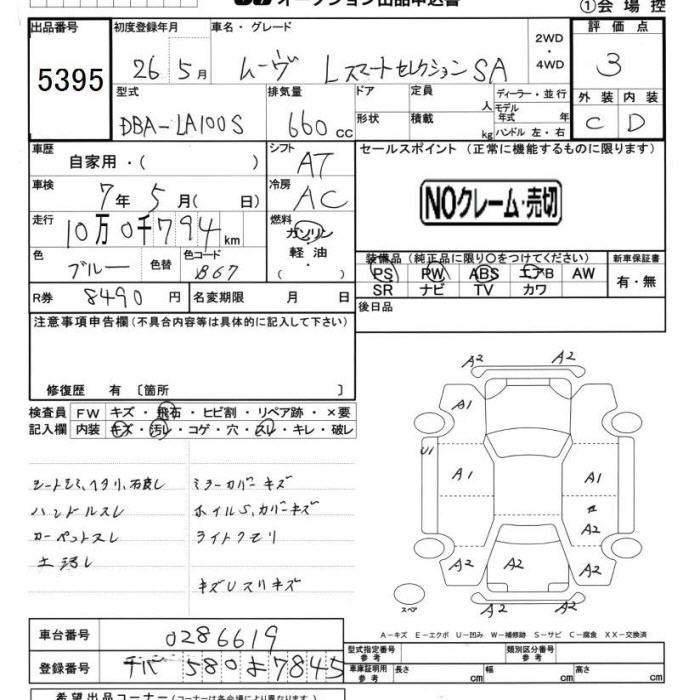 オークション出品申込書
①会場控
出品番号
5395
初度登録年月
26年5月
車名・グレード
ムーヴ LスマートセレクションSA
2WD
・
4WD
評価点
3
外装 内装
C D
型式
DBA-LA100S
排気量
660cc
ドア
定員
人
ディーラー・並行
モデル年式
年
形状
積載
kg
ハンドル 左・右
車歴
自家用・( )
シフト
AT
セールスポイント (正常に機能するものに限ります)
NOクレーム・売切
車検
7年5月( 日)
冷房
AC
走行
10万0千794km
燃料
ガソリン
軽・油
( )
色
ブルー
色替
色コード
B67
装備品 (純正品に限り○をつけてください)
PS PW ABS エアB AW
SR ナビ TV カワ
新車保証書
有・無
R券
8490円
名変期限 月 日
後日品
注意事項申告欄(不具合内容等は具体的に記入して下さい)
修復歴 有 〔箇所 〕
検査員記入欄
FW キズ・飛石・ヒビ割・リペア跡・×要
内装 キズ・汚レ・コゲ・穴・スレ・キレ・破レ
ハンドルスレ
カーペットスレ
ミラーカバーキズ
ホイルS、カバーキズ
ライトクモリ
キズUスリキズ
A2 A2
A1
U1
A1 A1
A2
A2 A2 A2
A2 A2
スペア
A-キズ E-エクボ U-凹み W-補修跡 S-サビ C-腐食 XX-交換済
車台番号
0286619
登録番号
チバ 580 よ 7845
型式指定番号
参考
類別区分番号
参考
車庫証明用
参考
長さ cm 幅 cm 高さ cm
希望出品コーナー(コーナーは各会場により異なります)